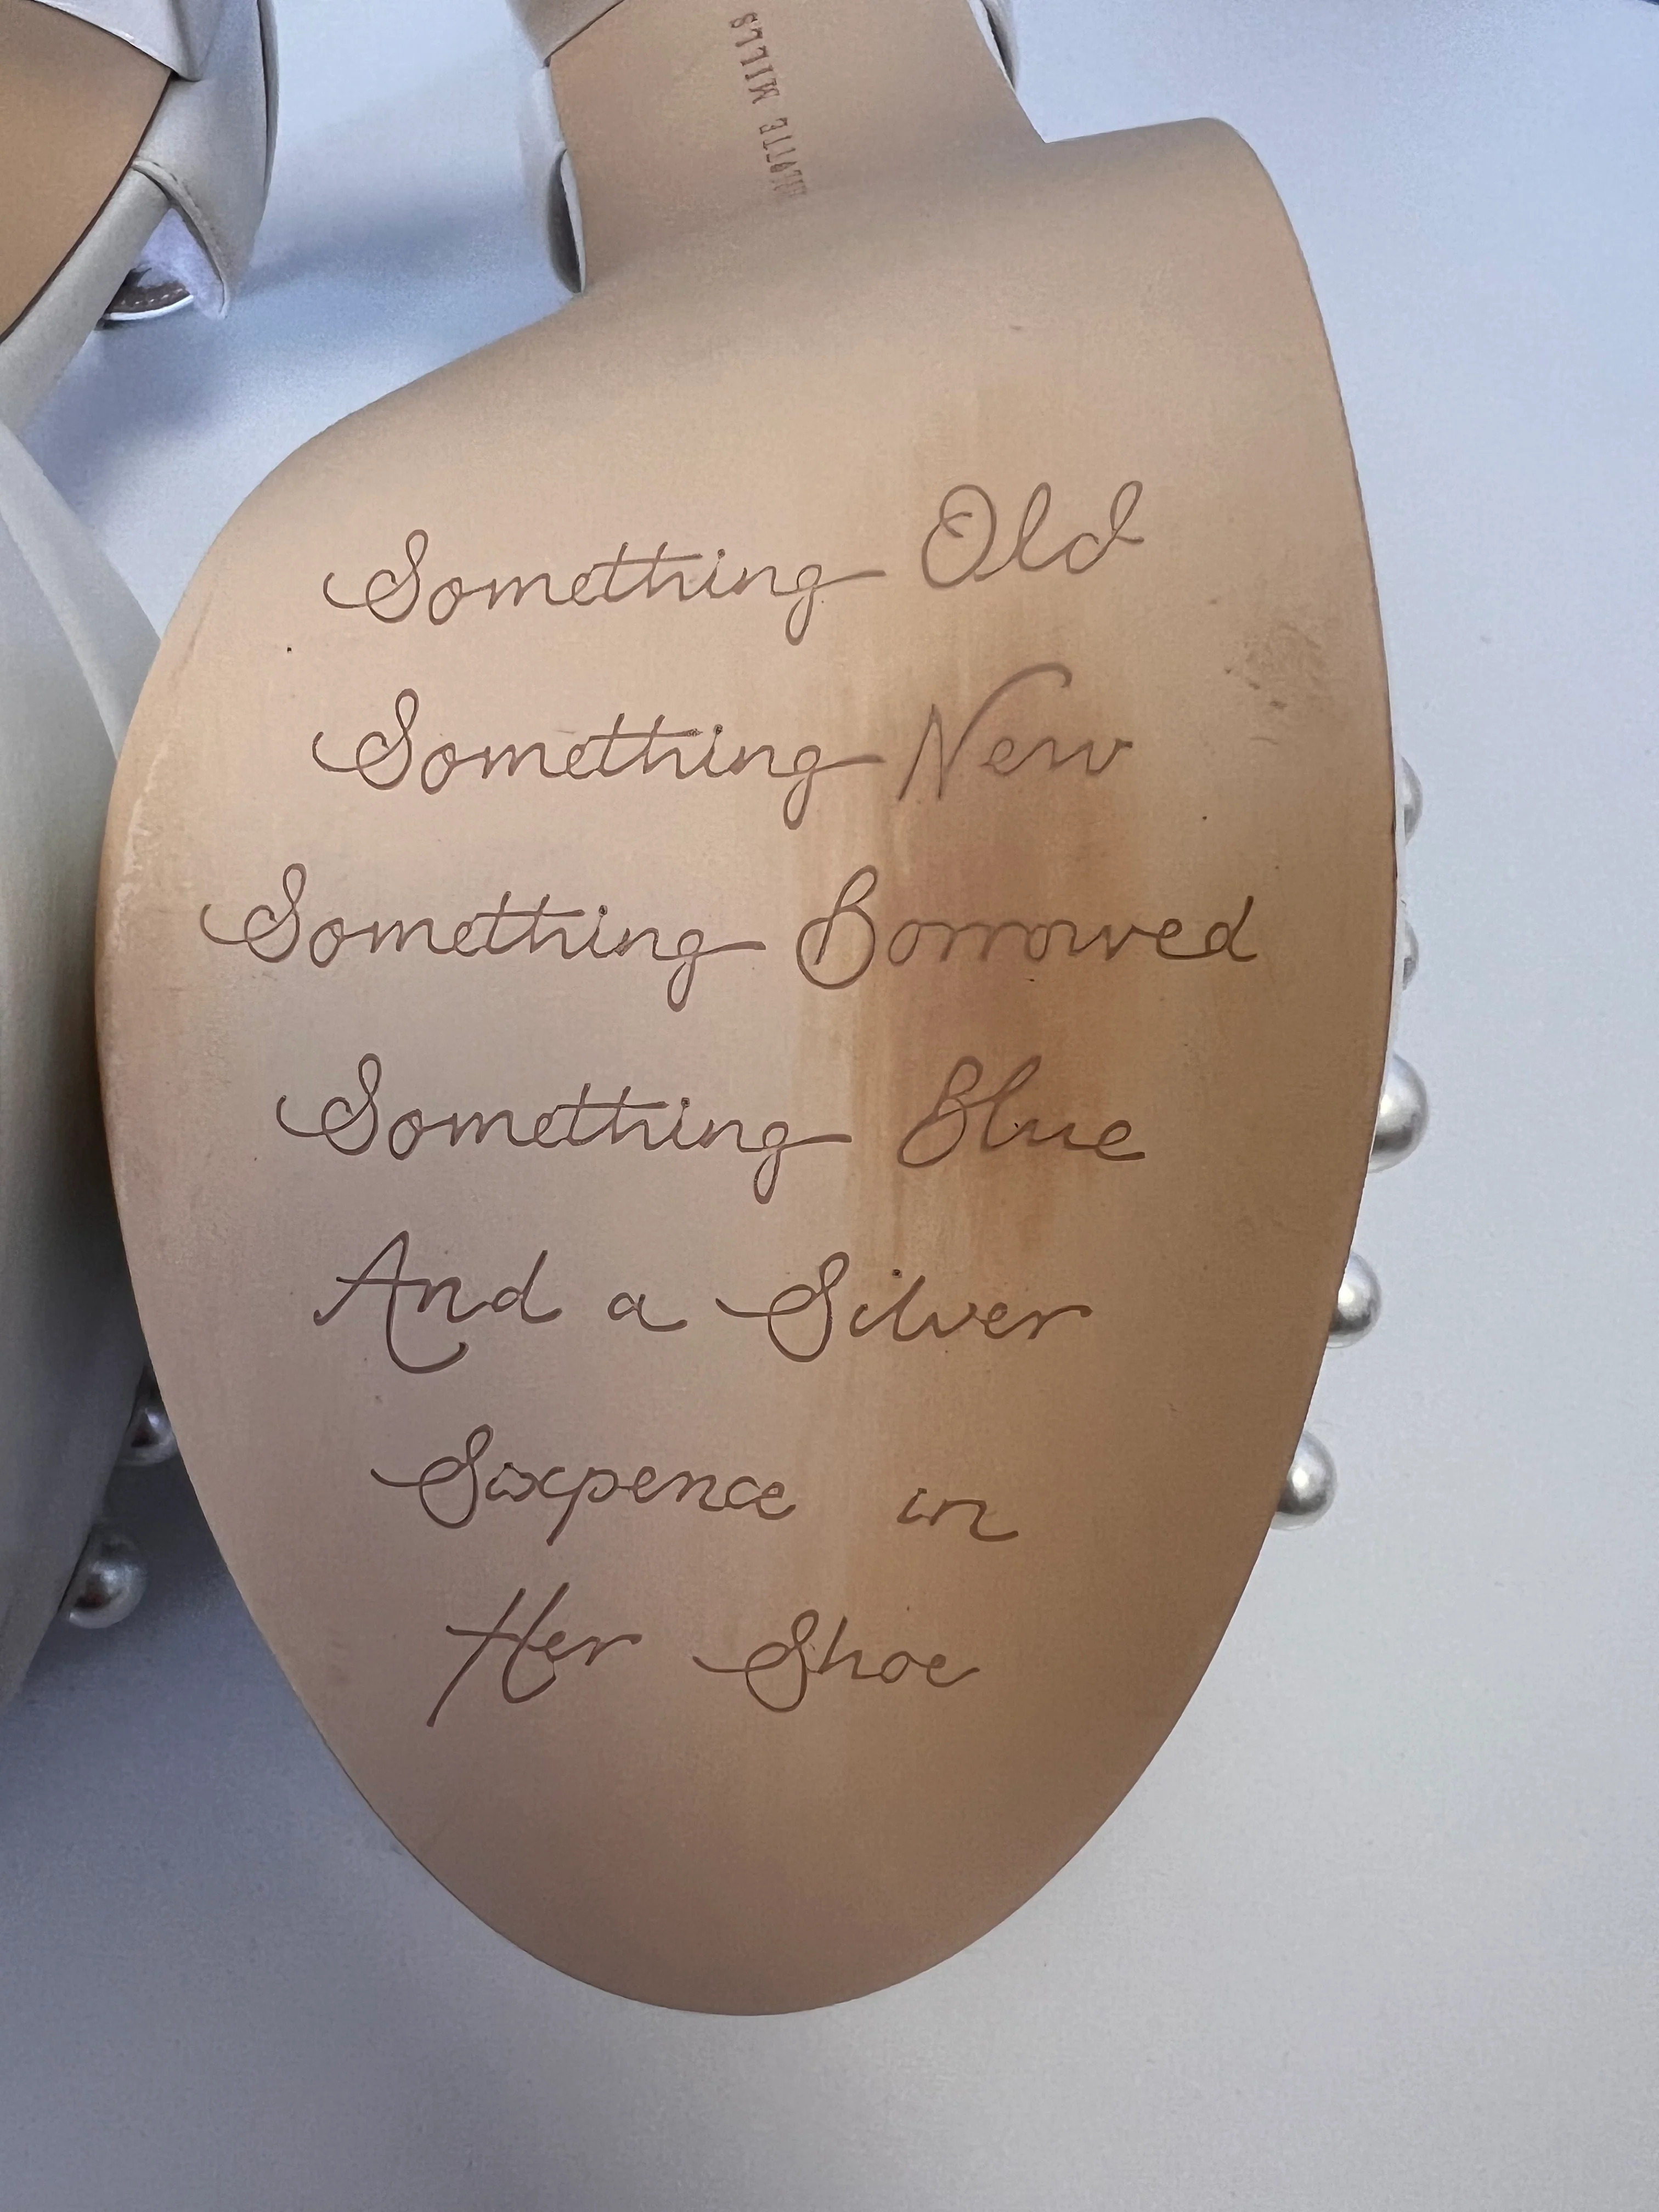 MILLS
Something Old
Something New
Something Borrowed
Something Blue
And a Silver
Sixpence in
Her Shoe